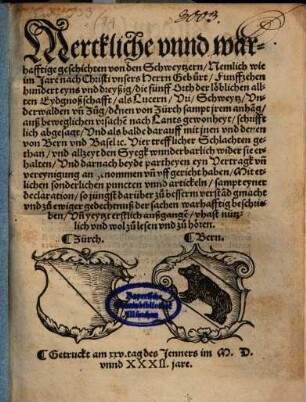 3003.
Merckliche vnnd war-
hafftige geschichten von den Schweytzern / Nemlich wie
im Jare nach Christi vnsers Herrn Gebürt / Funfftzehen
hundert eyns vnd dreyßig / die fünff Orth der löblichen all-
ten Eydgnoßschafft / als Lucern / Vri / Schweyz / Vn-
derwalden vñ Zug / denen von Zürch sampt jrem anhãg /
auß beweglichen vrsachẽ nach Lants gewonheyt / schrifft
lich abgesagt / Vnd als balde darauff mit jnen vnd denen
von Bern vnd Basel etc. Vier trefflicher Schlachten ge-
than / vnd allzeyt den Syegk wunderbarlich wider sie er-
halten / Vnd darnach beyde partheyen eyn Vertragk vñ
vereynigung an genommen vñ vff gericht haben / Mit et-
lichen sonderlichen puncten vnnd artickeln / sampt eyner
declaration / so jüngst darüber zů besserm verstãd gmacht
vnd zů ewiger gedechtnuß der sachen warhafftig beschri-
ben / Vñ yeyzt erstlich außgangẽ / vhast nütz-
lich vnd wol zů lesen vnd zů hören.
Zürch. Bern.
Bayerische
Staatsbibliothek
München
Getruckt am xxv. tag des Jenners im M. D.
vnnd XXXII. jare.